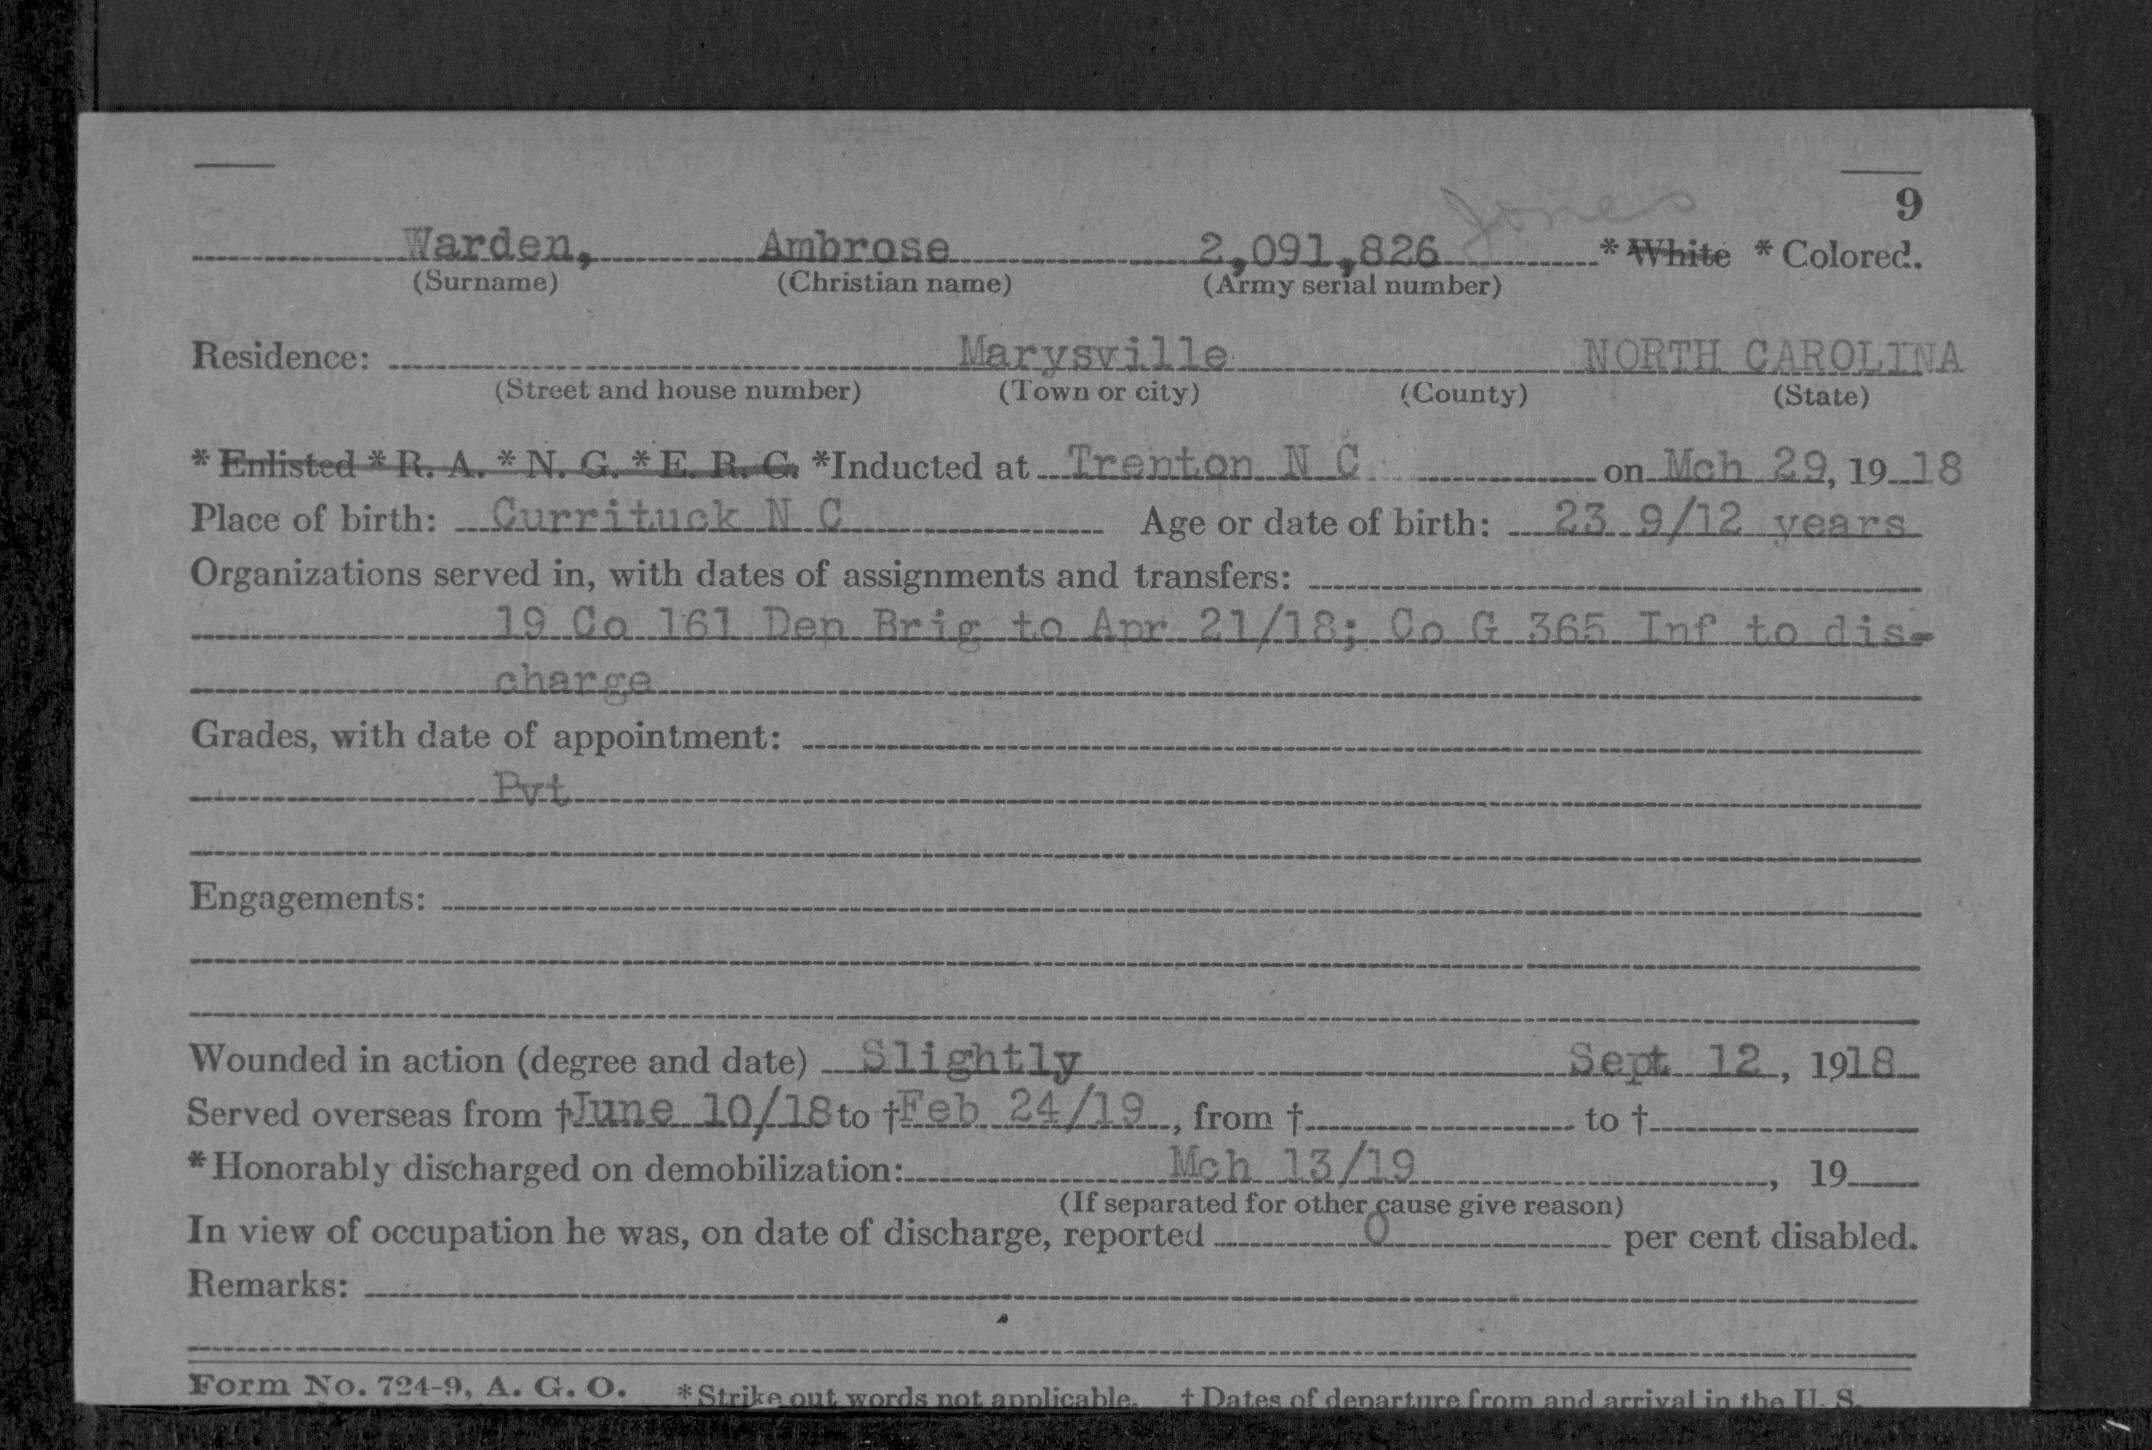 Jones
9
Warden, Ambrose 2,091,826 * White * Colored.
(Surname) (Christian name) (Army serial number)
Residence: Marysville NORTH CAROLINA
(Street and house number) (Town or city) (County) (State)
* Enlisted * R. A. * N. G. * E. R. C. *Inducted at Trenton N C on Mch 29, 19 18
Place of birth: Currituck N C Age or date of birth: 23 9/12 years
Organizations served in, with dates of assignments and transfers:
19 Co 161 Dep Brig to Apr 21/18; Co G 365 Inf to dis-
charge
Grades, with date of appointment:
Pvt
Engagements:
Wounded in action (degree and date) Slightly Sept 12, 1918
Served overseas from †June 10/18 to †Feb 24/19, from † to †
*Honorably discharged on demobilization: Mch 13/19, 19
(If separated for other cause give reason)
In view of occupation he was, on date of discharge, reported 0 per cent disabled.
Remarks:
Form No. 724-9, A. G. O. *Strike out words not applicable. †Dates of departure from and arrival in the U. S.